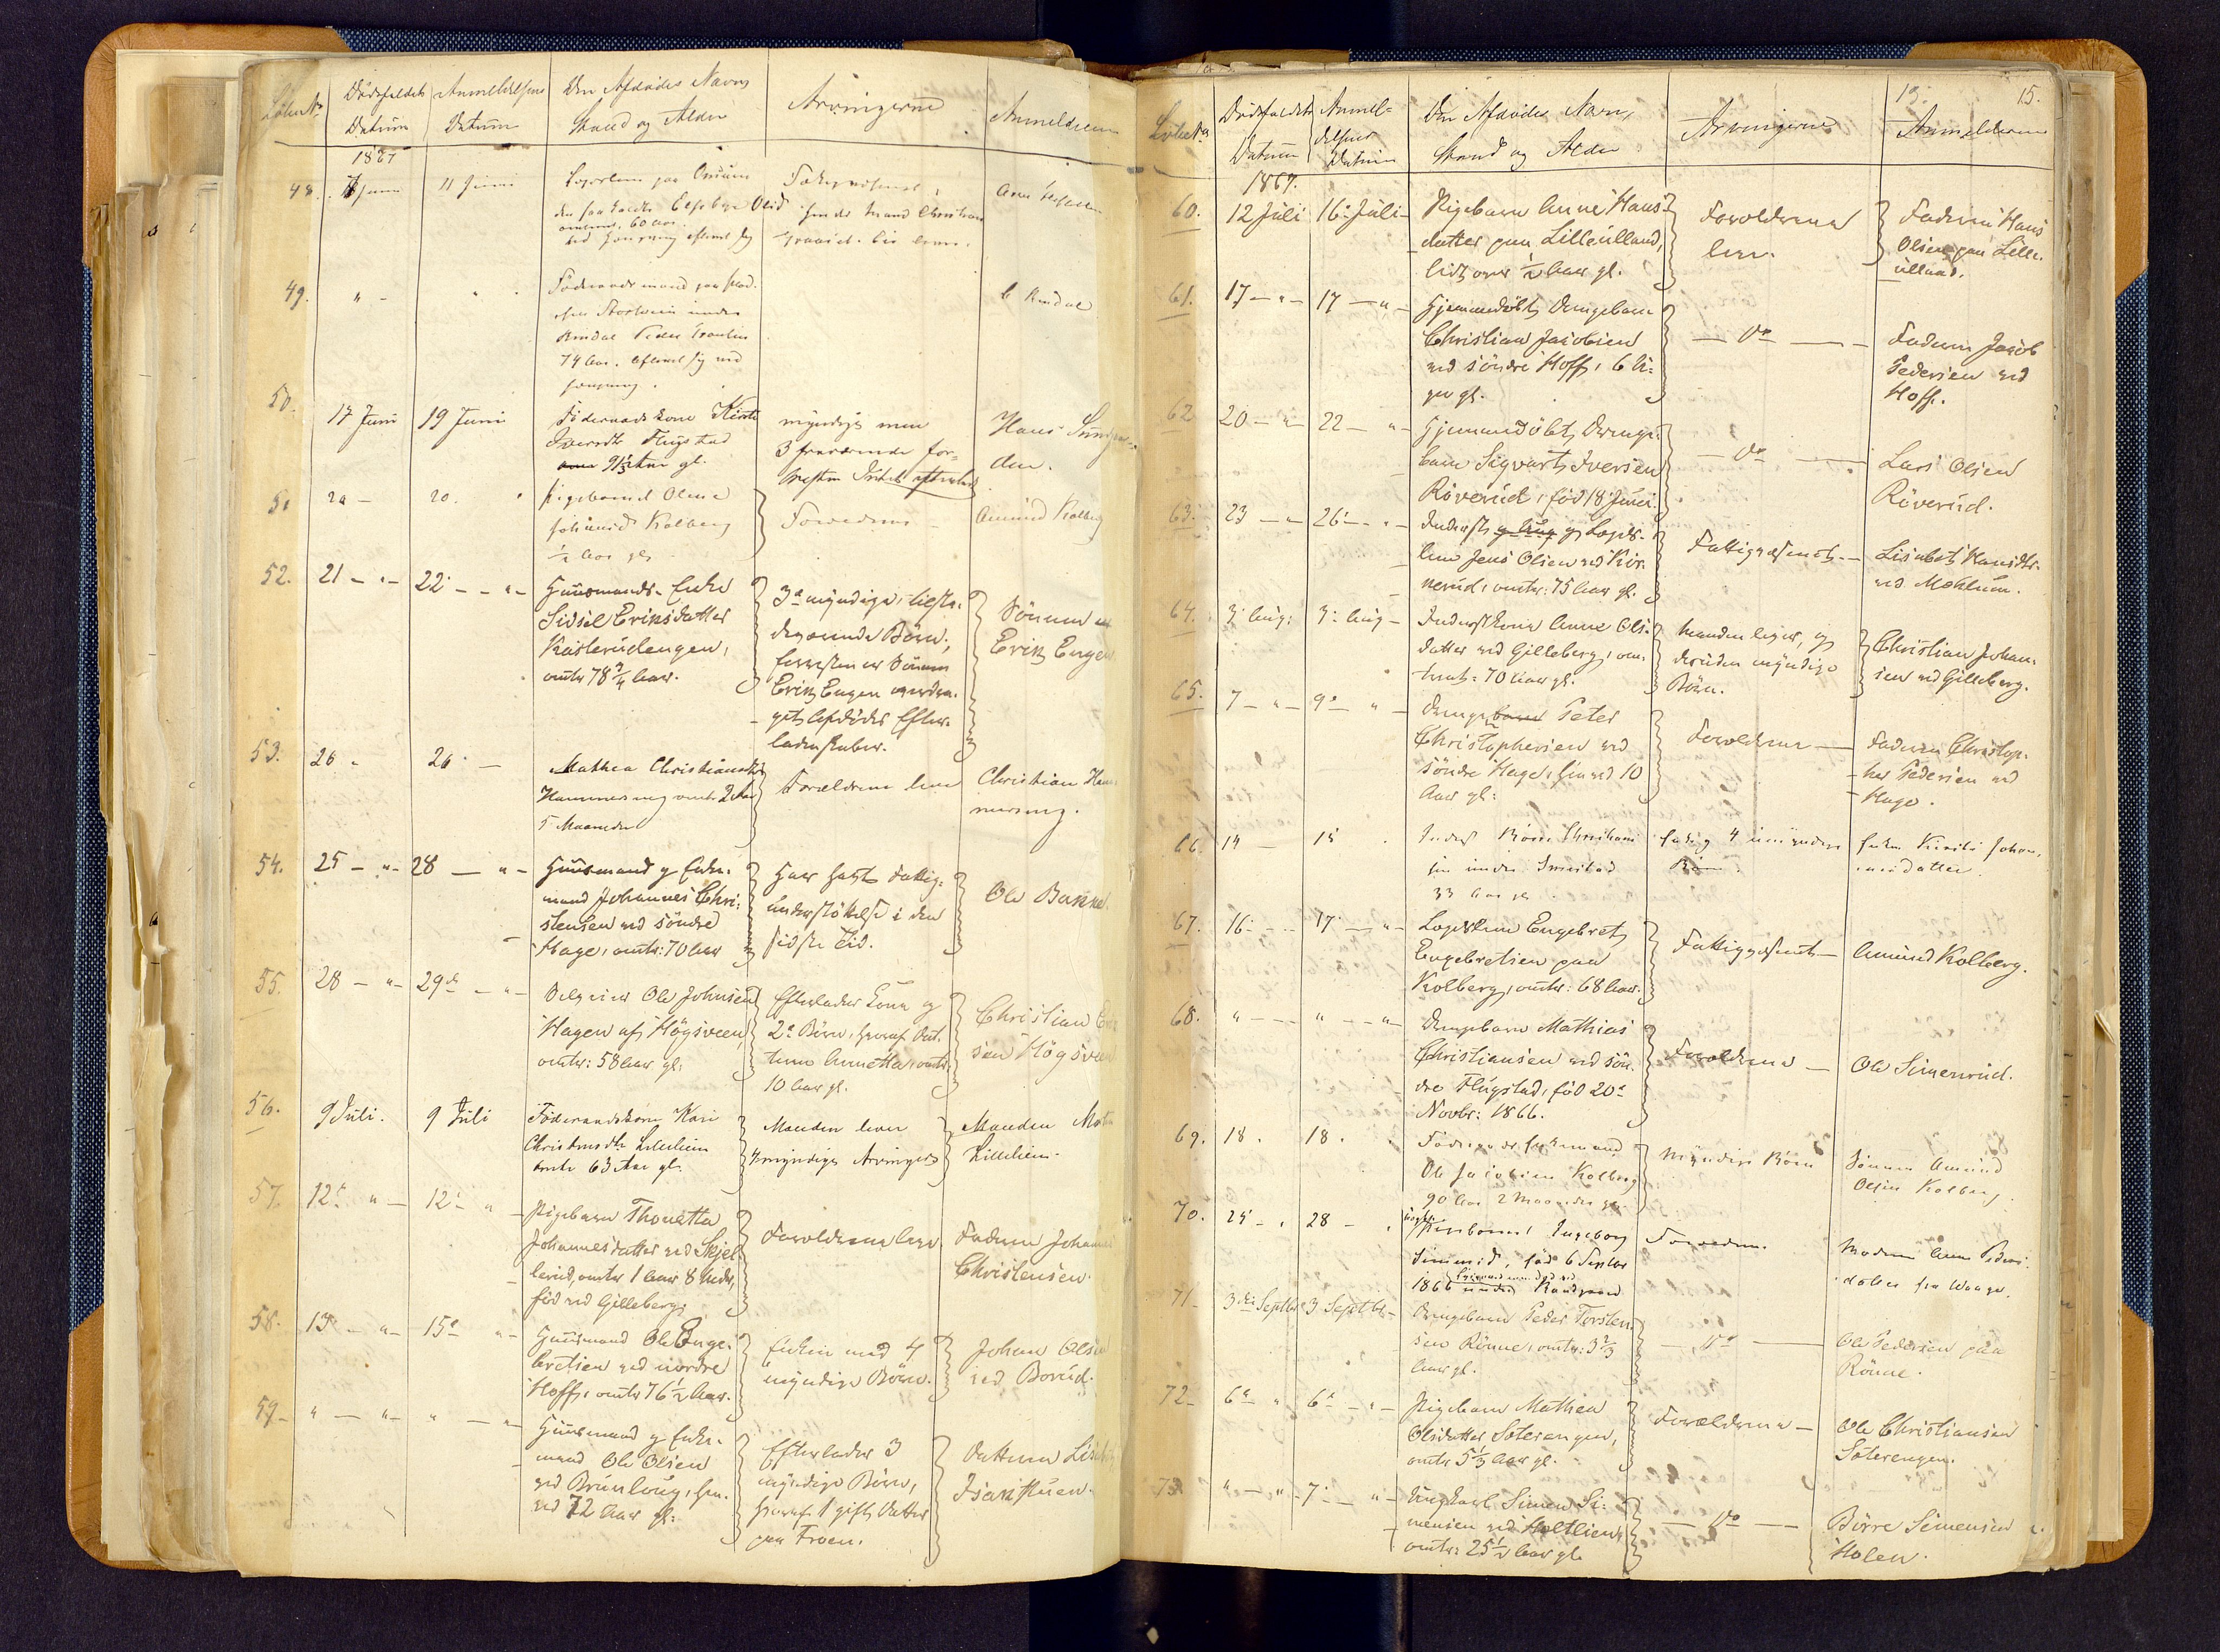 Löbe No
Dödsfaldets Datum
Anmeldelsens Datum
Den Afdødes Navn
Stand og Alder
Arvingerne
Anmelderen
1867
48. Juni 11 Juni
60 Aar
Christian
49. " -
74 Aar. efterlod sig
50. 17 Juni 19 Juni
Föderaadskone
Flugstad
91½ Aar gl.
myndige men
3 fraværende
Hans
51 20 - 20.
Pigebarnet Oline
Kolberg
½ Aar gl.
Amund Kolberg
52. 21 - " - 22 - " -
Huusmands-Enke
Sidsel Eriksdatter
Kasterudengen,
omtr 78¾ Aar.
3e myndige, tilste-
deværende Börn,
forresten er Sönnen
Erik Engen
Afdödes Efter-
ladenskaber.
Sönnen
Erik Engen
53. 26 " 26 -
Mathea Christiansdtr
Hammereng omtr 2 Aar
5 Maaneder
Forældrene leve
Christian Ham
mereng.
54. 25 - " - 28 - " -
Huusmand og Enke-
mand Johannes Chri-
stensen ved söndre
Hage, omtr: 70 Aar
Har havt Fattig-
understöttelse i den
sidste Tid.
Ole Bakke
55. 28 - " - 29de - " -
Selveier Ole Johnsen
Hagen af Högsveen,
omtr: 58 Aar gl.
Efterlader Kone og
2e Börn, hvoraf Dat-
teren Annette, omtr.
10 Aar gl.
Christian
sen Högsveen
56. 9 Juli. 9 Juli
Föderaadskone Kari
Christensdtr Lillehiem
omtr 63 Aar gl.
Manden lever
myndige Arvinger
Manden
Lillehiem.
57. 12te " - 12te " -
Pigebarn Thonetta
Johannesdatter ved Skjel-
lerud, omtr 1 Aar 8 Mdr,
föd ved Gilleberg.
Forældrene leve.
Faderen Johannes
Christensen.
58. 13 - " - 15de " -
Huusmand Ole Enge-
bretsen ved nordre
Hoff, omtr 76½ Aar.
Enken med 4
myndige Börn.
Johan Olsen
ved Borud.
59 - " - " - " - " -
Huusmand og Enke-
mand Ole Olsen
ved Brunlaug, hen-
ved 72 Aar gl:
Efterlader 3
myndige Börn,
hvoraf 1 gift Datter
paa Froen.
Datteren
15.
Löbe No
Dödsfaldets Datum
Anmel-
delsens
Datum
Den Afdødes Navn,
Stand og Alder
Arvingerne
Anmelderen
1867.
60. 12 Juli 16 Juli -
Pigebarn Anne Hans-
datter paa Lilleulland,
lidt over ½ Aar gl.
Forældrene
leve.
Faderen Hans
Olsen paa Lille-
ulland.
61. 17 - " - 17 - " -
Hjemmedöbt Drengebarn
Christian Jacobsen
ved söndre Hoff, 6 U-
ger gl.
- Do -
Faderen Jacob
Pedersen ved
Hoff.
62 20 - " - 22 - " -
Hjemmedöbt Drenge-
barn Sigvart Iversen
Röverud, föd 18 Juni.
- Do -
Lars Olsen
Röverud.
63. 23 - " - 26 - " -
Inderst og Legds-
lem Jens Olsen ved Kor-
nerud, omtr: 75 Aar gl.
Fattigvæsenet -
Lisabet Hansdtr.
ved Mæhlum.
64. 3 Aug: 3 Aug -
Inderstkone Anne Ols-
datter ved Gilleberg, om-
trent: 70 Aar gl.
Manden lever, og
desuden myndige
Börn.
Christian Johan-
sen ved Gilleberg.
65. 7 - " - 9de " -
Drengebarn Peter
Christophersen ved
söndre Hage, henved 10
Aar gl:
Forældrene -
Faderen Christop-
her Pedersen ved
Hage.
66. 14 - 15
Inderst
33 Aar gl.
4 umyndige
Börn.
Enken Johan-
nesdatter.
67. 16 - " 17 - " -
Legdslem Engebret
Engebretsen paa
Kolberg, omtr: 68 Aar.
Fattigvæsenet -
Amund Kolberg.
68. " - - " - " -
Drengebarn Mathias
Christiansen ved sön-
dre Flugstad, föd 20de
Novbr: 1866.
Forældrene -
Ole Simenrud.
69. 18. 18.
Föderaads Enkemand
Ole Jacobsen Kolberg
90 Aar 2 Maaneder gl.
Myndige Börn
Sönnen Amund
Olsen Kolberg.
70. 25 - " 28 - "
Pigebarnet Ingeborg
föd 6 Septbr
1866
Moderen Anne Peders-
datter fra
71 - 3die Septbr 3 Septbr -
Drengebarn Peder Torsten-
sen Rönne, omtr: 3⅔
Aar gl.
- Do -
Ole Pedersen paa
Rönne.
72 - 6te " 6te - " -
Pigebarn Mathea
Olsdatter Soterengen,
omtr 5⅓ Aar gl.
Forældrene -
Ole Christiansen
Soterengen.
73 " - " - 7 - " -
Ungkarl Simen Si-
mensen ved Holtlien,
omtr: 25½ Aar gl.
- Do -
Börre Simensen
Holen.